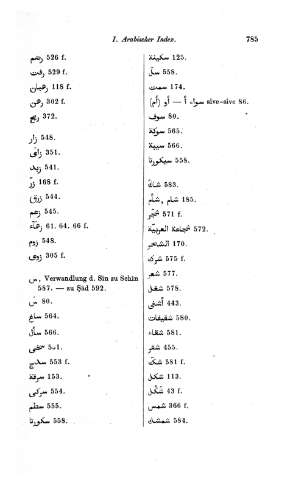 I. Arabischer Index. 785
رهم 526 f.
رفت 529 f.
رهبان 118 f.
رهن 302 f.
ريح 372.
زار 548.
زافى 351.
زبد 541.
زر 168 f.
زرق 544.
زعم 545.
61. 64. 66 f.
زوم 548.
زوى 305 f.
س, Verwandlung d. Sin zu Schin
587. — zu Ṣād 592.
س 80.
ساغ 564.
سأل 566.
551.
553 f.
سرقة 153.
سركى 554.
سطم 555.
سكورتا 558.
سكينة 125.
سل 558.
سمت 174.
سواء أ — أو (أم) sive-sive 86.
سوف 80.
سوكة 565.
سيبة 566.
سيكورتا 558.
شاف 583.
شام, شأم 185.
شجر 571 f.
شجاعة العربية 572.
الشحر 170.
شرك 575 f.
شعر 577.
شغل 578.
أشفى 443.
شقيفات 580.
شقاء 581.
شقر 455.
شكّ 581 f.
شكل 113.
شكل 43 f.
شمس 366 f.
شمشك 584.